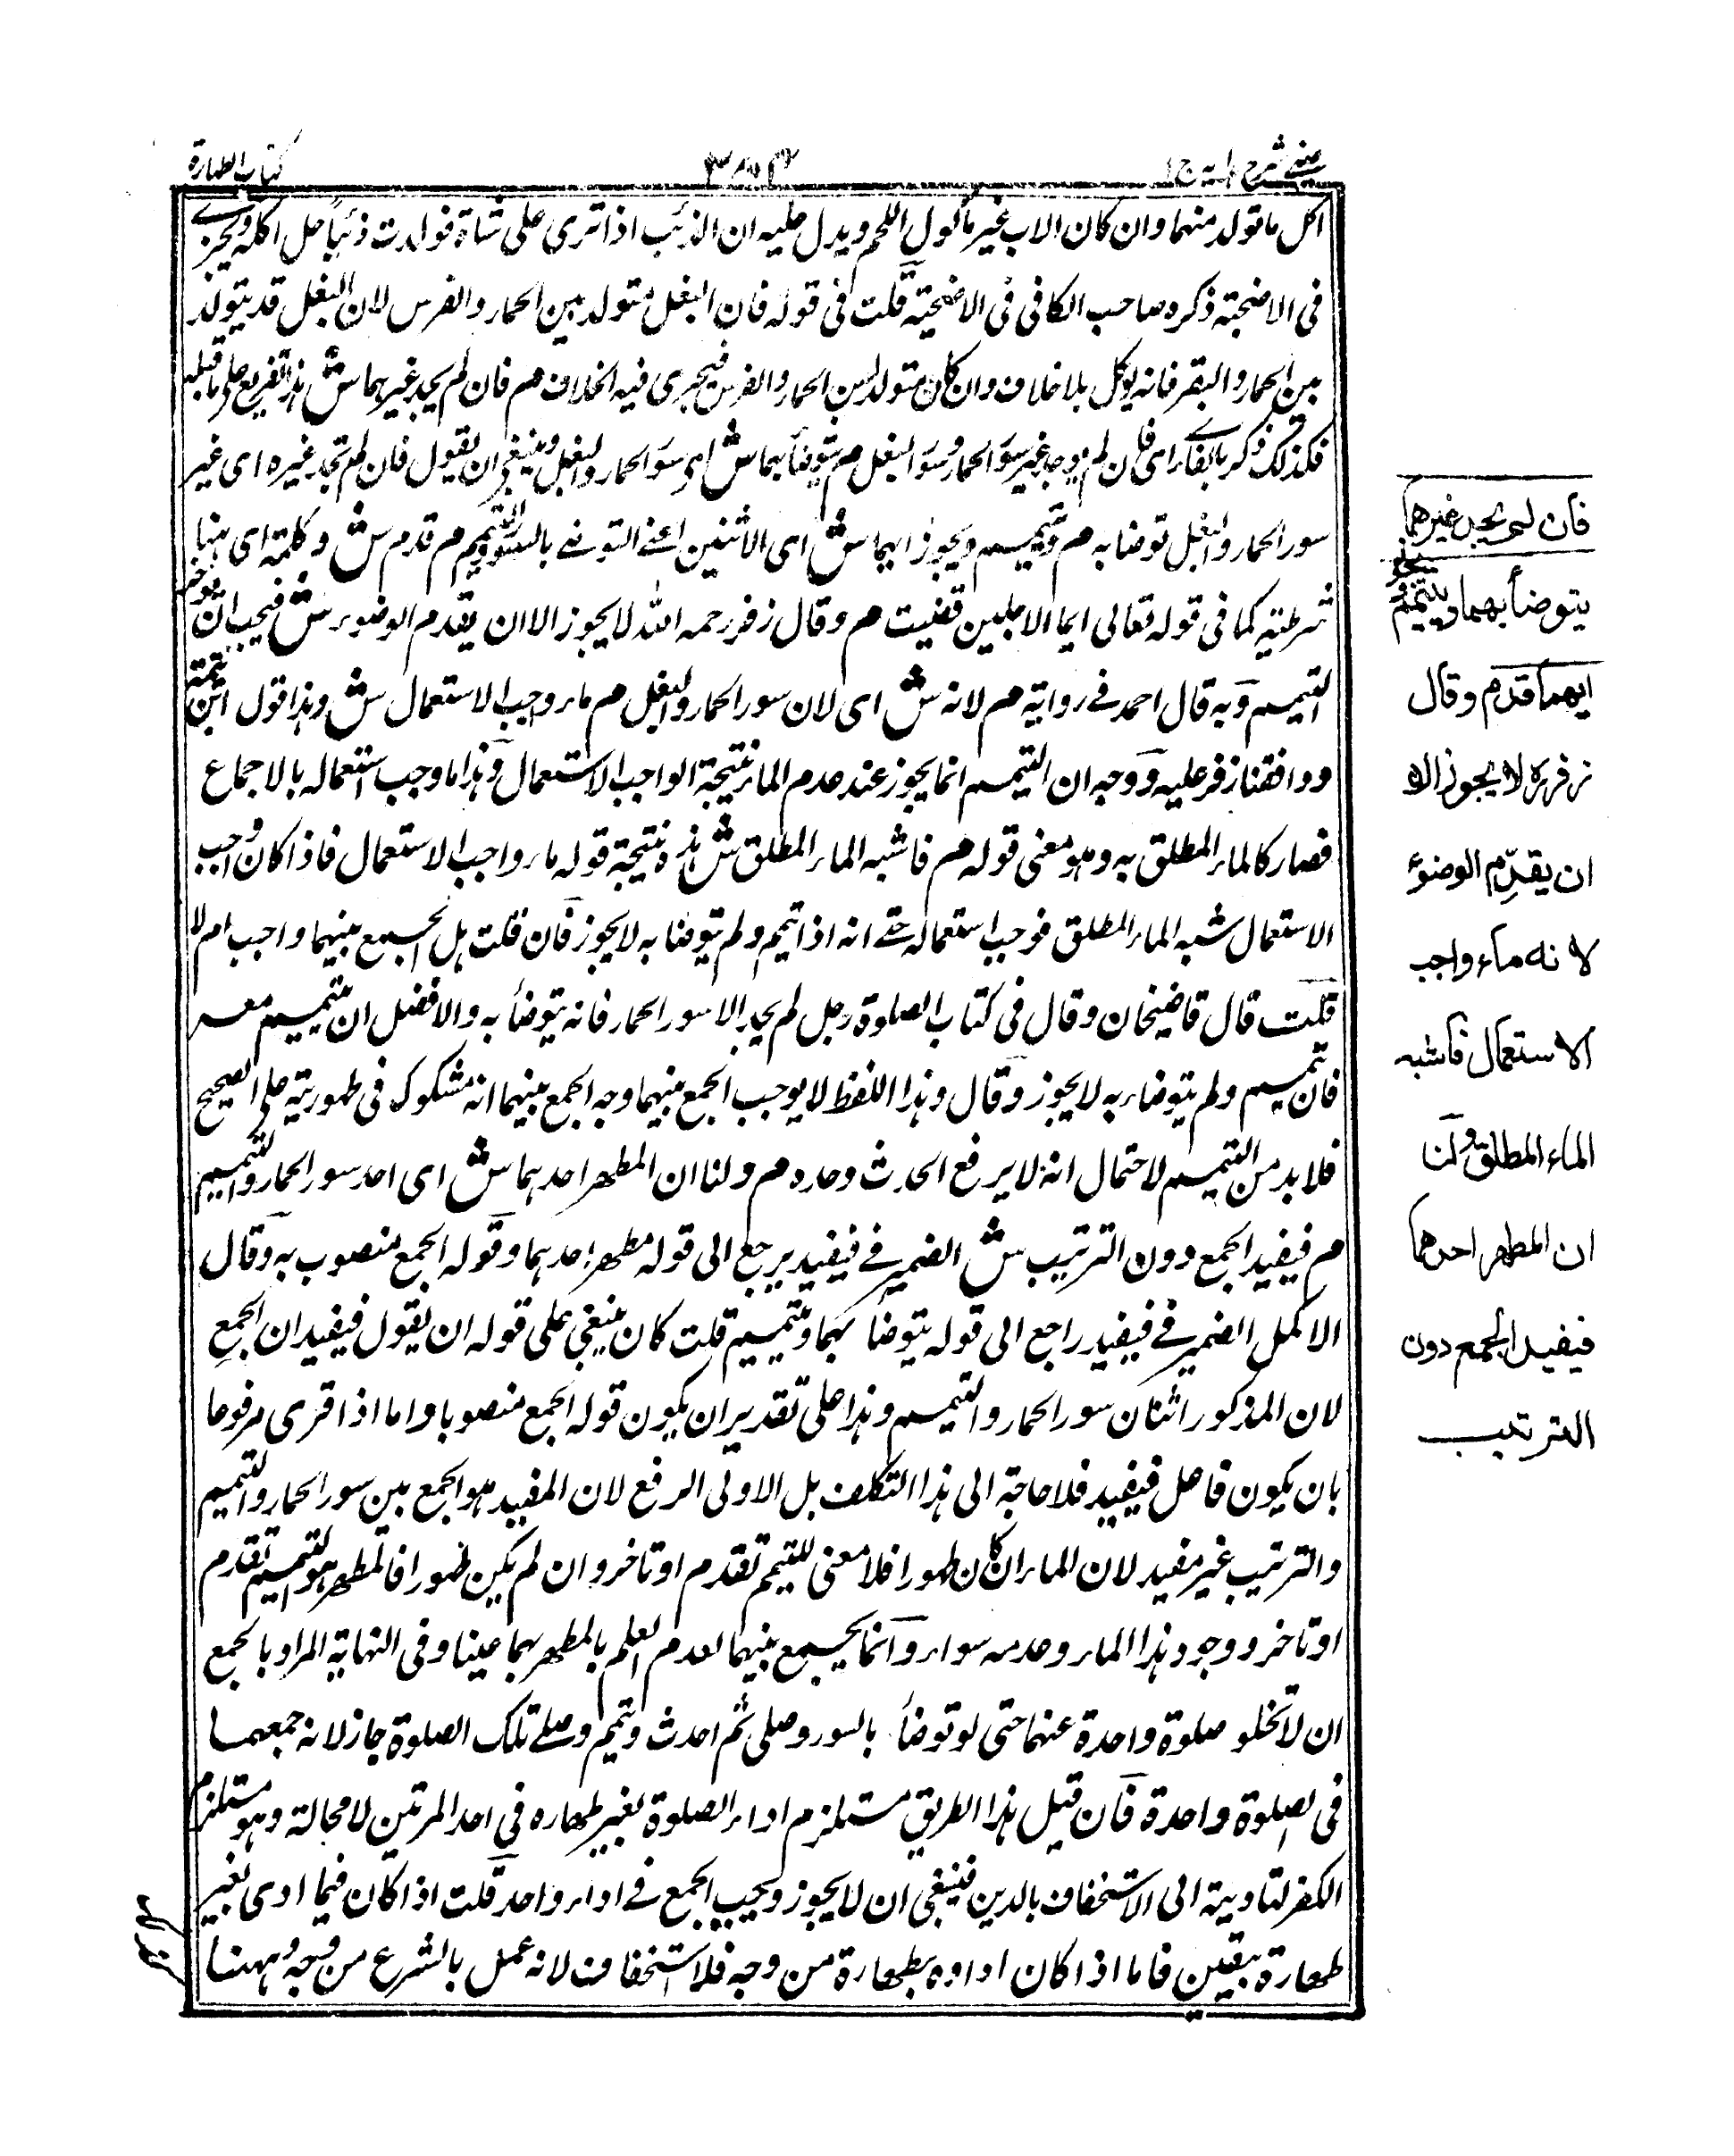 عيني شرح هداية ج ١
٣٨٣
كتاب الطهارة
اكل ما تولد منهما وان كان الاب غير مأكول اللحم ويدل عليه ان الذئب اذا نزى على شاة فولدت ذئبا حل اكله ويجزى
فى الاضحية ذكره صاحب الكافى فى الاضحية قلت فى قوله فان البغل متولد بين الحمار والفرس لان البغل قد يتولد
بين الحمار والبقر فانه يوكل بلا خلاف وان كان متولد بين الحمار والفرس فيجرى فيه الخلاف م فان لم يجد غيرهما ش هذا تفريع على ما قبله
فكذلك ذكر بالفاء اى فان لم يوجد غير سور الحمار وسور البغل م يتوضأ بهما ش اى سور الحمار والبغل وينبغى ان يقول فان لم تجد غيره اى غير
سور الحمار والبغل توضا به م ويتيمم ويجوز ايهما ش اى الاثنين اعنى التوضى بالسور والتيمم م قدم ش وكلمة اى هنا
شرطية كما فى قوله تعالى ايما الاجلين قضيت م وقال زفر رحمه الله لا يجوز الا ان يقدم الوضوء ش فيجب ان يؤخر
التيمم وبه قال احمد فى رواية م لانه ش اى لان سور الحمار والبغل م ماء واجب الاستعمال ش وهذا قول ائمتنا
ووافقنا زفر عليه ووجه ان التيمم انما يجوز عند عدم الماء نتيجة الواجب الاستعمال وهذا ما وجب استعماله بالاجماع
فصار كالماء المطلق به وهو معنى قوله م فاشبه الماء المطلق ش هذه نتيجة قوله ماء واجب الاستعمال فاذا كان واجب
الاستعمال شبه الماء المطلق فوجب استعماله حتى انه اذا تيمم ولم يتوضا به لا يجوز فان قلت هل الجمع بينهما واجب ام لا
قلت قال قاضيخان وقال فى كتاب الصلوة رجل لم يجد الا سور الحمار فانه يتوضأ به والافضل ان يتيمم معه
فان تيمم ولم يتوضاء به لا يجوز وقال وهذا اللفظ لا يوجب الجمع بينهما وجه الجمع بينهما انه مشكوك فى طهوريته على الصحيح
فلا بد من التيمم لاحتمال انه لا يرفع الحدث وحده م ولنا ان المطهر احدهما ش اى احد سور الحمار والتيمم
م فيفيد الجمع دون الترتيب ش الضمير فى فيفيد يرجع الى قوله مطهر احدهما وقوله الجمع منصوب به وقال
الاكمل الضمير فى فيفيد راجع الى قوله يتوضا بهما ويتيمم قلت كان ينبغى على قوله ان يقول فيفيدان الجمع
لان المذكور اثنان سور الحمار والتيمم وهذا على تقدير ان يكون قوله الجمع منصوبا واما اذا قرى مرفوعا
بان يكون فاعل فيفيد فلا حاجة الى هذا التكلف بل الاولى الرفع لان المفيد هو الجمع بين سور الحمار والتيمم
والترتيب غير مفيد لان الماء ان كان طهورا فلا معنى للتيمم تقدم او تاخر وان لم يكن طهورا فالمطهر هو التيمم تقدم
او تاخر ووجود هذا الماء وعدمه سواء وانما يجمع بينهما لعدم العلم بالمطهر بهما عينا وفى النهاية المراد بالجمع
ان لا تخلو صلوة واحدة عنهما حتى لو توضأ بالسور وصلى ثم احدث وتيمم وصلى تلك الصلوة جاز لانه جمعهما
فى الصلوة واحدة فان قيل هذا الطريق مستلزم اداء الصلوة بغير طهاره فى احد المرتين لا محالة وهو مستلزم
الكفر لتاديته الى الاستخفاف بالدين فينبغى ان لا يجوز ويجب الجمع فى اداء واحد قلت اذا كان فيما ادى بغير
طهارة بيقين فاما اذا كان اداوه بطهارة من وجه فلا استخفاف لانه عمل بالشرع من وجه وههنا
فان لم يجد غيرهما
يتوضأ بهما ويتيمم ويجوز
ايهما قدم وقال
زفر ره لا يجوز الا
ان يقدم الوضوء
لانه ماء واجب
الاستعمال فاشبه
الماء المطلق ولنا
ان المطهر احدهما
فيفيد الجمع دون
الترتيب